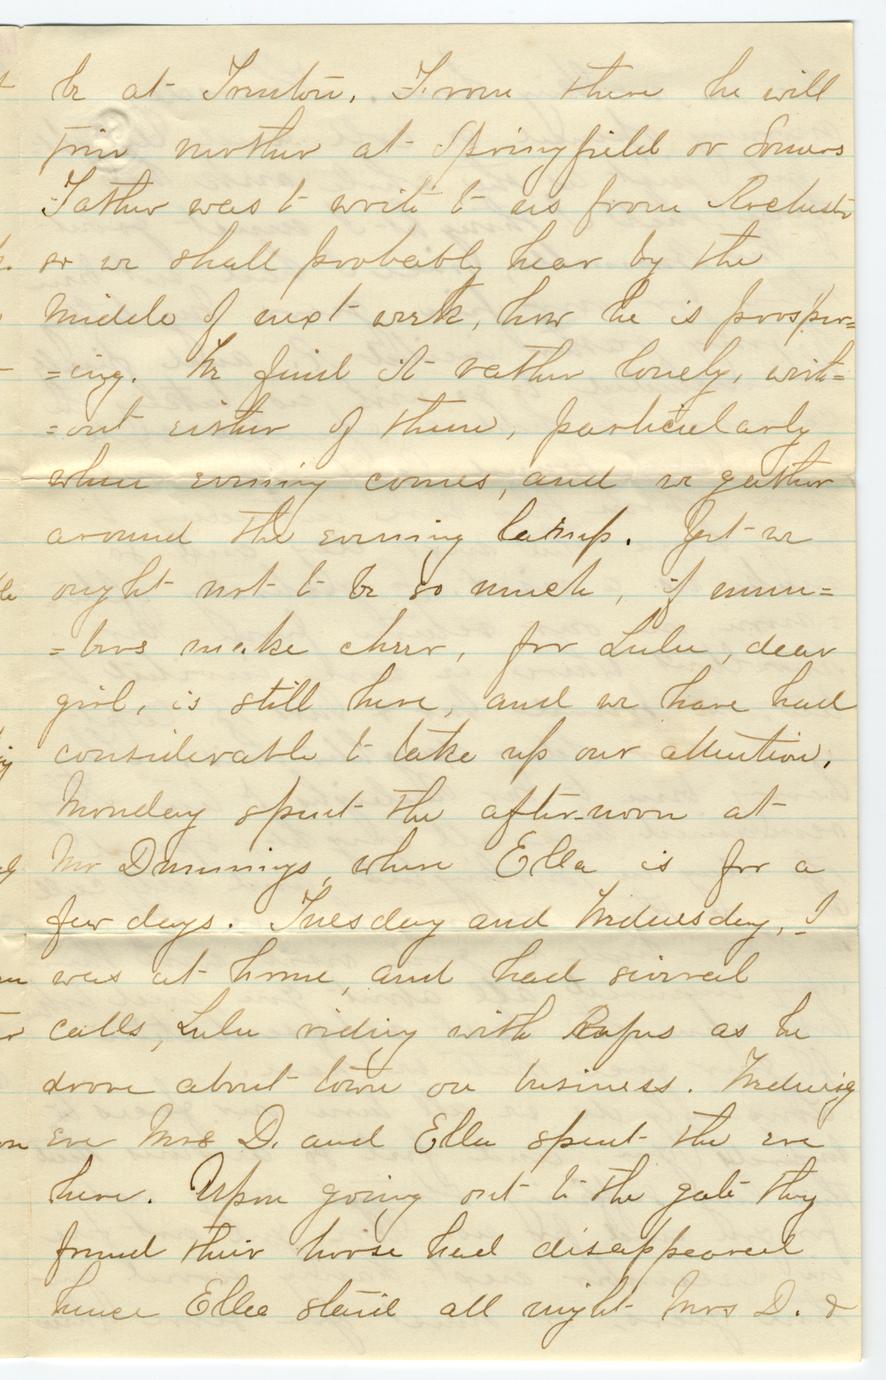 be at Trenton. From there he will
join mother at Springfield or Somers
Father was to write to us from Rochester
so we shall probably hear by the
middle of next week, how he is prosper=
=ing. We find it rather lonely, with=
=out either of them, particularly
when evening comes, and we gather
around the evening lamp. Yet we
ought not to be so much, if num=
=bers make cheer, for Lulu, dear
girl, is still here, and we have had
considerable to take up our attention.
Monday spent the after-noon at
Mr Dunnings, where Ella is for a
few days. Tuesday and Wednesday, I
was at home, and had several
calls, Lulu riding with Rufus as he
drove about town on business. Wednesdy
eve Mrs D. and Ella spent the eve
here. Upon going out to the gate they
found their horse had disappeared
hence Ella staid all night Mrs D. &